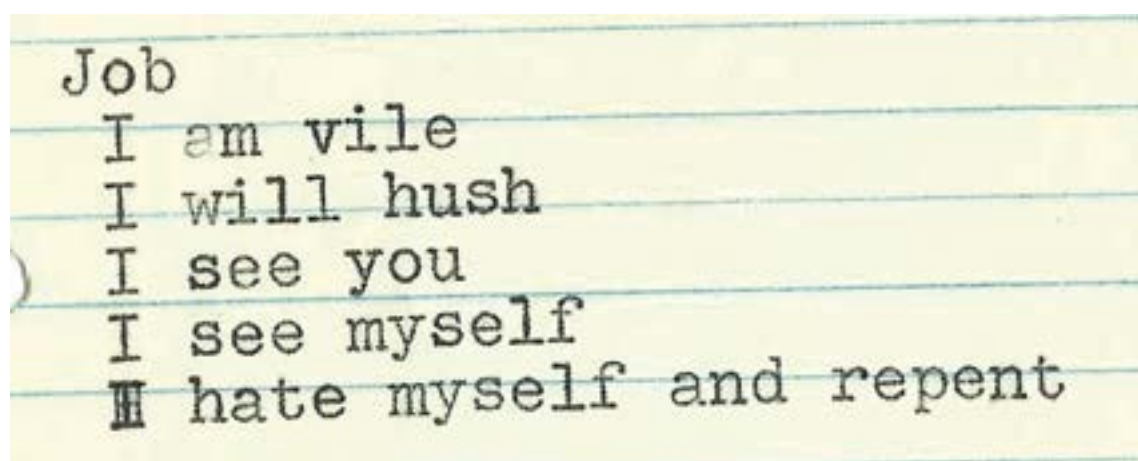 Job
I am vile
I will hush
I see you
I see myself
I hate myself and repent